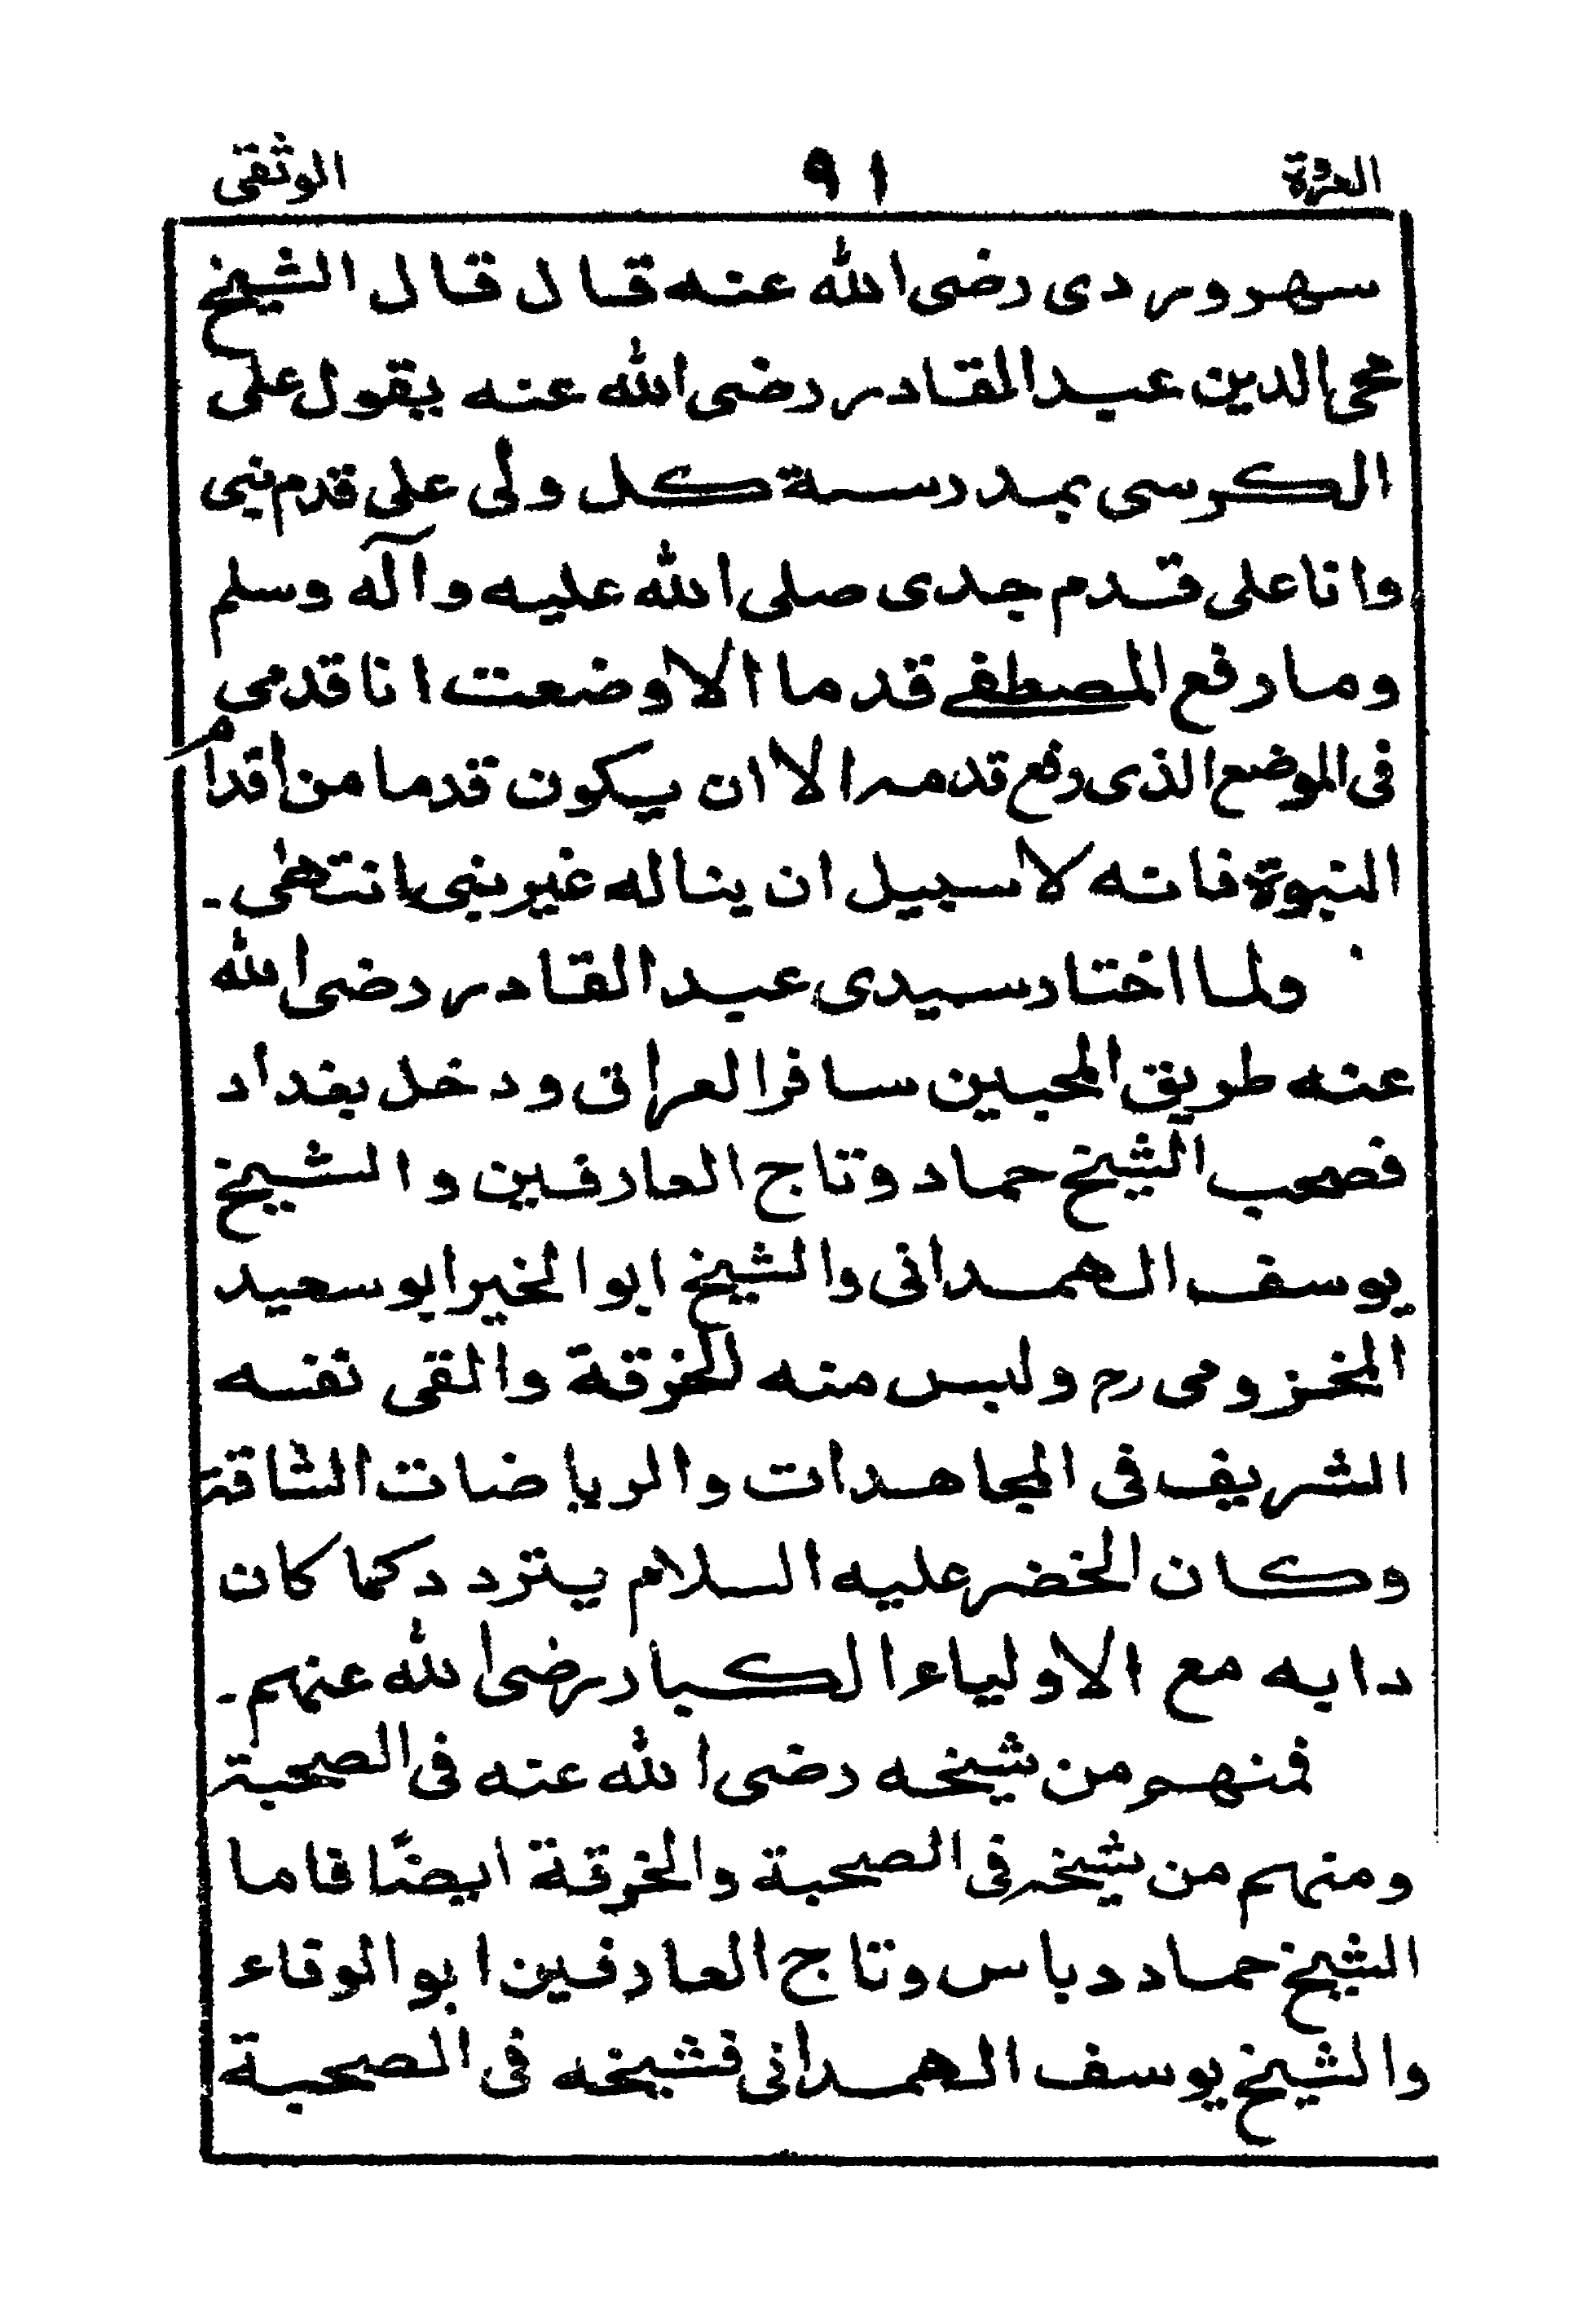 العروة ٩١ الوثقى
سهروردى رضى الله عنه قال قال الشيخ
محى الدين عبد القادر رضى الله عنه يقول على
الكرسى بمدرسة كل ولى على قدم نبى
وانا على قدم جدى صلى الله عليه وآله وسلم
وما رفع المصطفے قدما الا وضعت انا قدمى
فى الموضع الذى رفع قدمه الا ان يكون قدما من اقدام
النبوة فانه لا سبيل ان يناله غير نبى انتهٰى ۔
ولما اختار سيدى عبد القادر رضى الله
عنه طريق المحبين سافر العراق ودخل بغداد
فصحب الشيخ حماد وتاج العارفين والشيخ
يوسف الهمدانى والشيخ ابو الخير ابو سعيد
المخزومى رح ولبس منه الخرقة والقى نفسه
الشريف فى المجاهدات والرياضات الشاقة
وكان الخضر عليه السلام يتردد كما كان
دابه مع الاولياء الكبار رضى الله عنهم ۔
فمنهم من شيخه رضى الله عنه فى الصحبة
ومنهم من شيخه فى الصحبة والخرقة ايضًا فاما
الشيخ حماد دباس وتاج العارفين ابو الوفاء
والشيخ يوسف الهمدانى فشيخه فى الصحبة